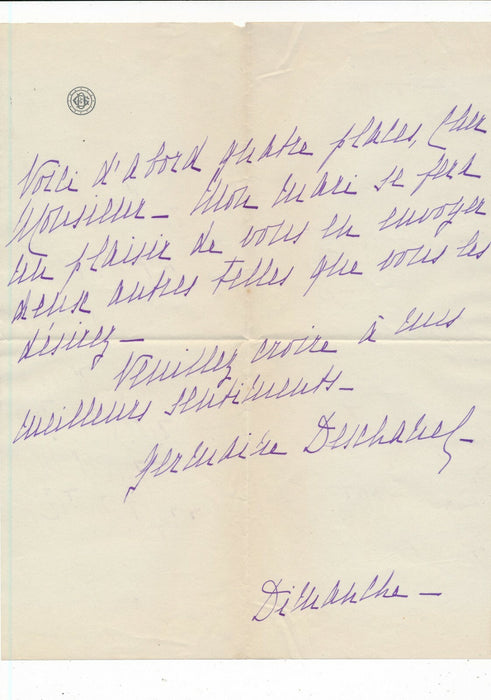 Voici d'abord quatre places, Cher
Monsieur_ Mon mari se fera
un plaisir de vous en envoyer
deux autres telles que vous les
désirez_
Veuillez croire à mes
meilleurs sentiments_
Germaine Deschanel_
Dimanche_